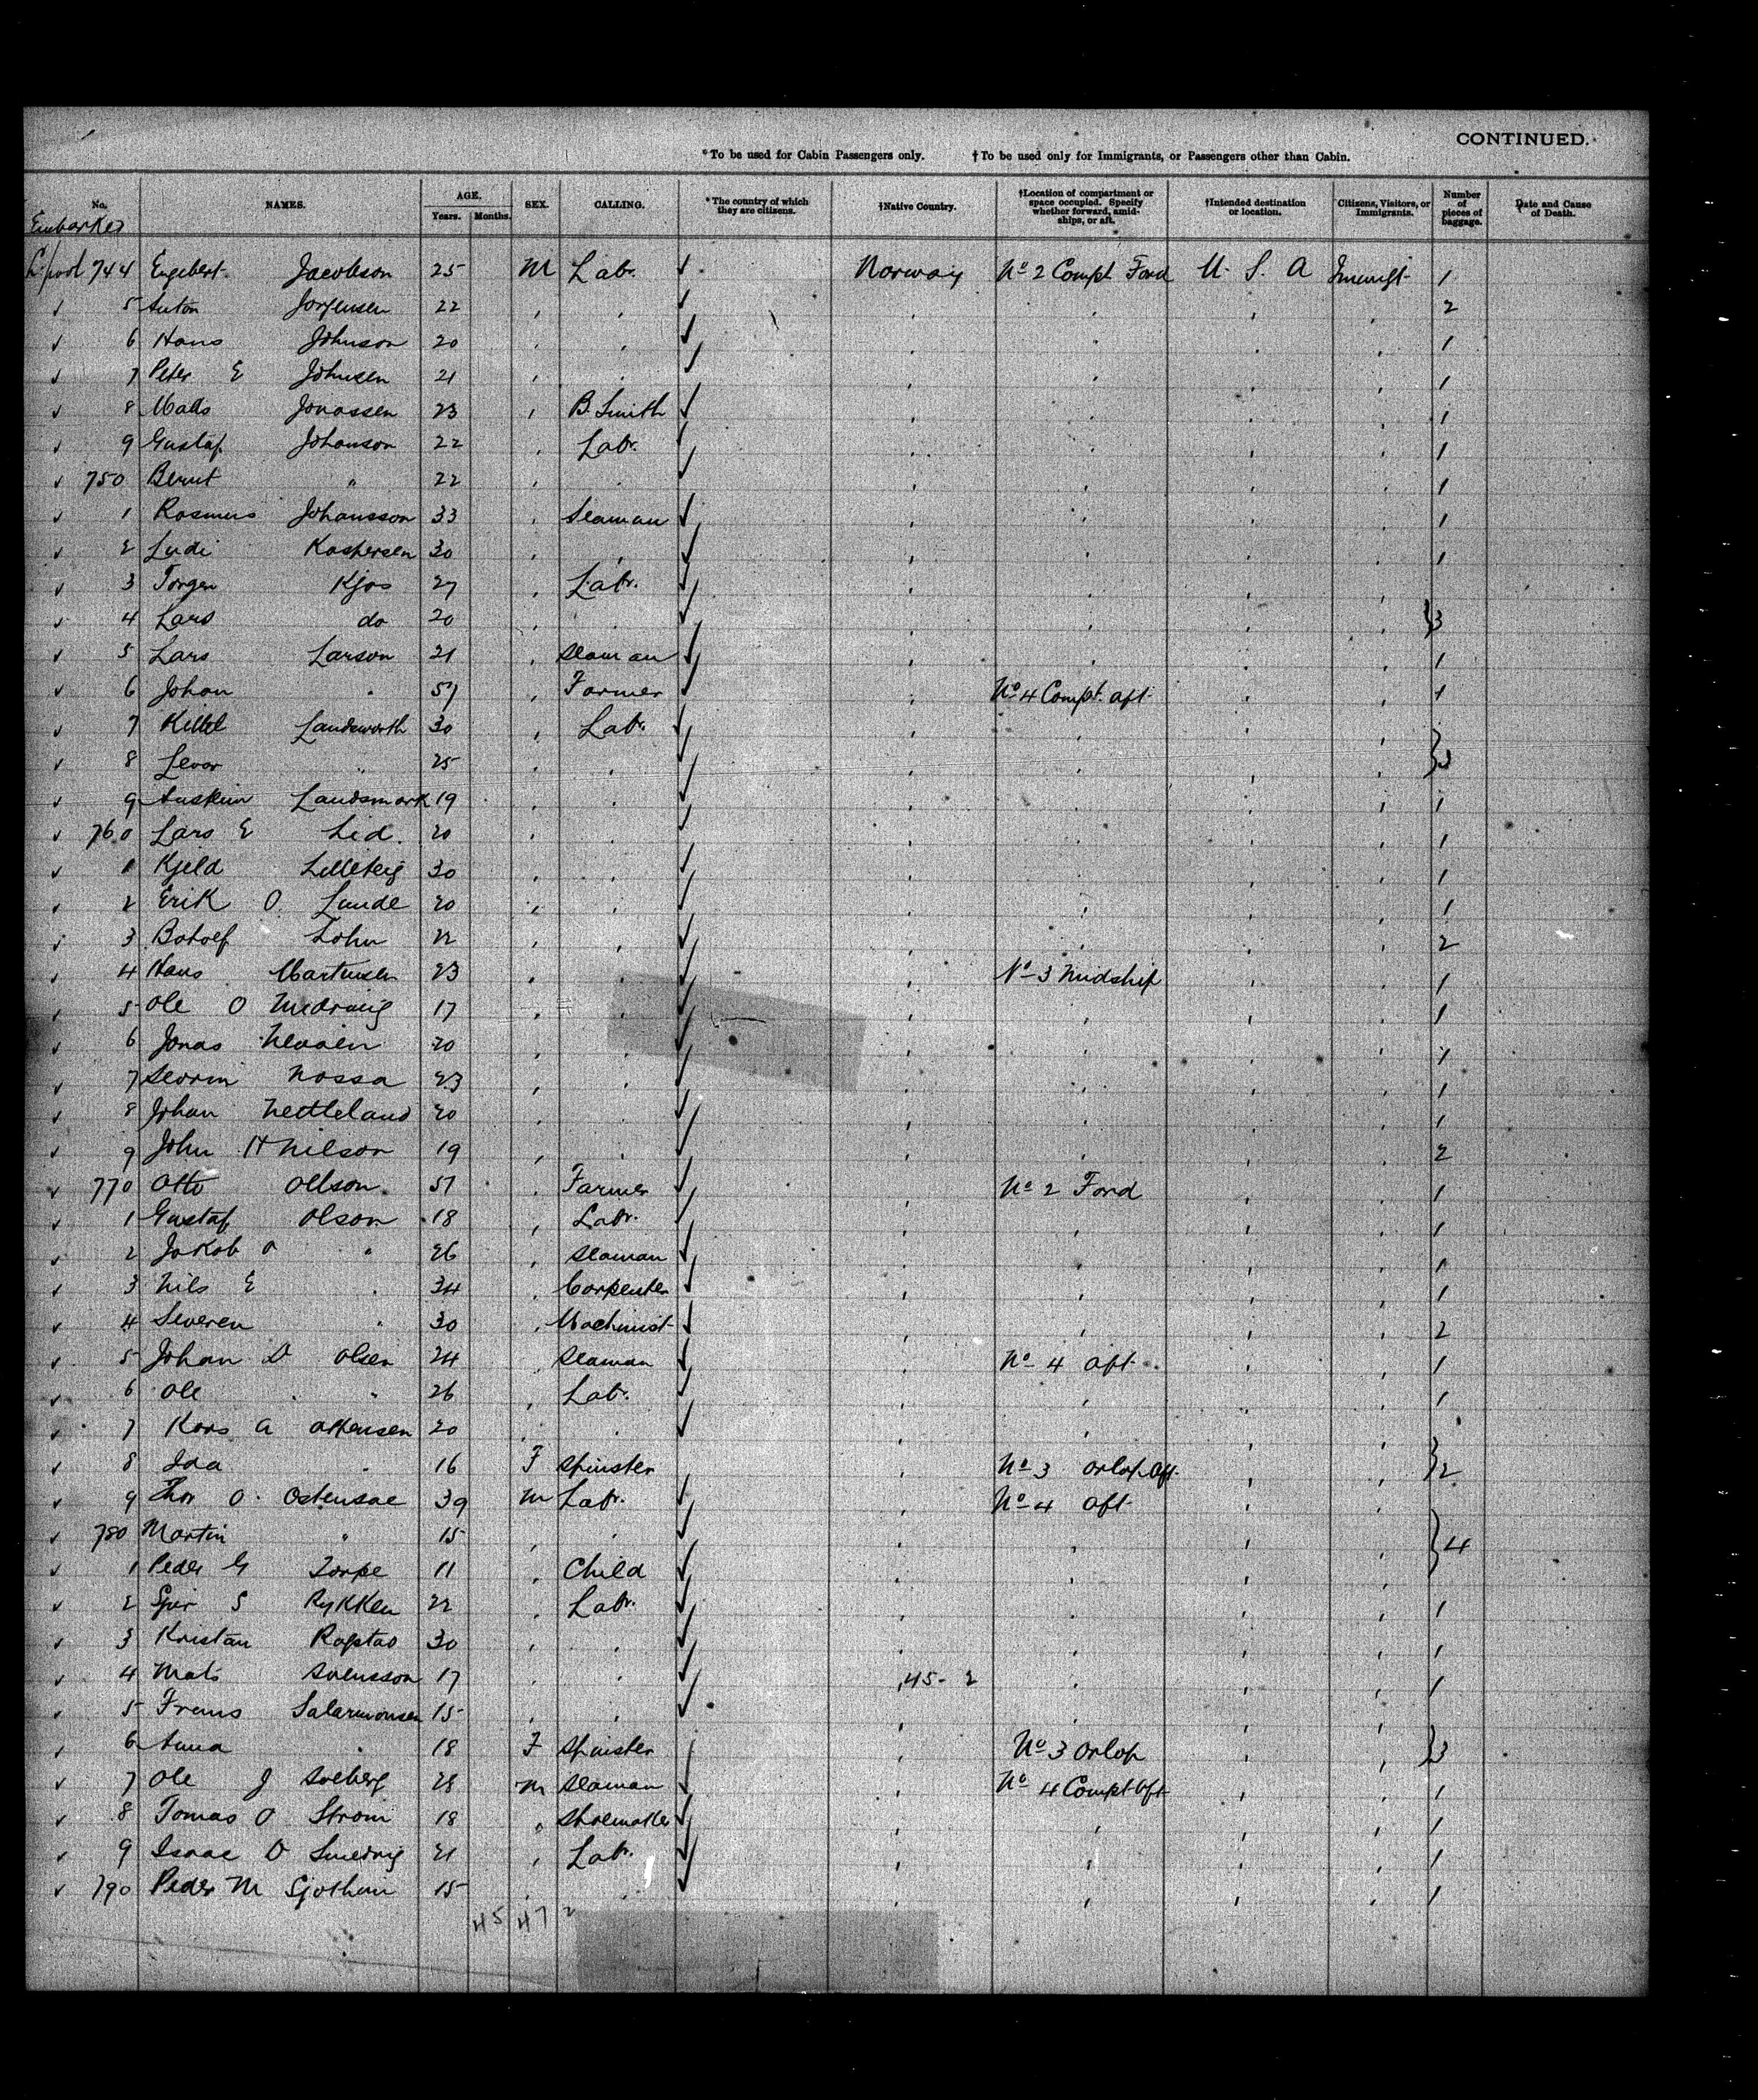 CONTINUED.
*To be used for Cabin Passengers only. †To be used only for Immigrants, or Passengers other than Cabin.
No. NAMES. AGE. Years. Months. SEX. CALLING. *The country of which they are citizens. †Native Country. †Location of compartment or space occupied. Specify whether forward, amidships, or aft. †Intended destination or location. Citizens, Visitors, or Immigrants. Number of pieces of baggage. Date and Cause of Death.
Embarked
L'pool 744 Engebert Jacobson 25 M Labr. ✓ Norway No 2 Compt Ford U. S. A Immigt 1
✓ 5 Anton Jorgensen 22 ✓ 2
✓ 6 Hans Johnson 20 ✓ 1
✓ 7 Peter E Johnsen 21 ✓ 1
✓ 8 Mads Jonassen 23 B. Smith ✓ 1
✓ 9 Gustaf Johanson 22 Labr. ✓ 1
✓ 750 Bernt " 22 ✓ 1
✓ 1 Rasmus Johansson 33 Seaman ✓ 1
✓ 2 Ludi Kaspersen 30 ✓ 1
✓ 3 Torger Kjos 27 Labr. ✓
✓ 4 Lars do 20 ✓ }3
✓ 5 Lars Larson 21 Seaman ✓ 1
✓ 6 Johan " 57 Farmer ✓ No 4 Compt. aft 1
✓ 7 Kittel Landsworth 30 Labr. ✓
✓ 8 Levor " 25 ✓ }3
✓ 9 Landsmark 19 ✓ 1
✓ 760 Lars E Lid. 20 ✓ 1
✓ 1 Kjeld Lilleteig 30 ✓ 1
✓ 2 Erik O. Lunde 20 ✓ 1
✓ 3 Botolf Lohn 22 ✓ 2
✓ 4 Hans Martinsen 23 ✓ No 3 Midship 1
✓ 5 Ole O 17 ✓ 1
✓ 6 Jonas 20 ✓ 1
✓ 7 Nossa 23 ✓ 1
✓ 8 Johan Nettleland 20 ✓ 1
✓ 9 John H Nilson 19 ✓ 2
✓ 770 Otto Ollson 57 Farmer ✓ No 2 Ford 1
✓ 1 Gustaf Olson 18 Labr. ✓ 1
✓ 2 Jakob O " 26 Seaman ✓ 1
✓ 3 Nils E " 34 Carpenter ✓ 1
✓ 4 Severen " 30 Machinist ✓ 2
✓ 5 Johan D Olsen 24 Seaman ✓ No 4 aft 1
✓ 6 Ole " 26 Labr. ✓ 1
✓ 7 A 20 ✓
✓ 8 Ida " 16 F Spinster No 3 Orlop Aft }2
✓ 9 Thor O. Ostensae 39 M Labr. ✓ No 4 aft
✓ 780 Martin " 15 ✓ }4
✓ 1 Peder G Torpe 11 Child ✓
✓ 2 S Rykken 22 Labr. ✓ 1
✓ 3 Kristan Rogstad 30 ✓ 1
✓ 4 Mats Svensson 17 ✓ 45 - 2 1
✓ 5 Salarmonsen 15 ✓
✓ 6 Anna " 18 F Spinster No 3 Orlop }3
✓ 7 Ole J Solberg 28 M Seaman ✓ No 4 Compt Aft 1
✓ 8 Tomas O Strom 18 " Shoemaker ✓ 1
✓ 9 Isaac O 21 Labr. ✓ 1
✓ 790 Peder M 15 ✓ 1
45 47 2